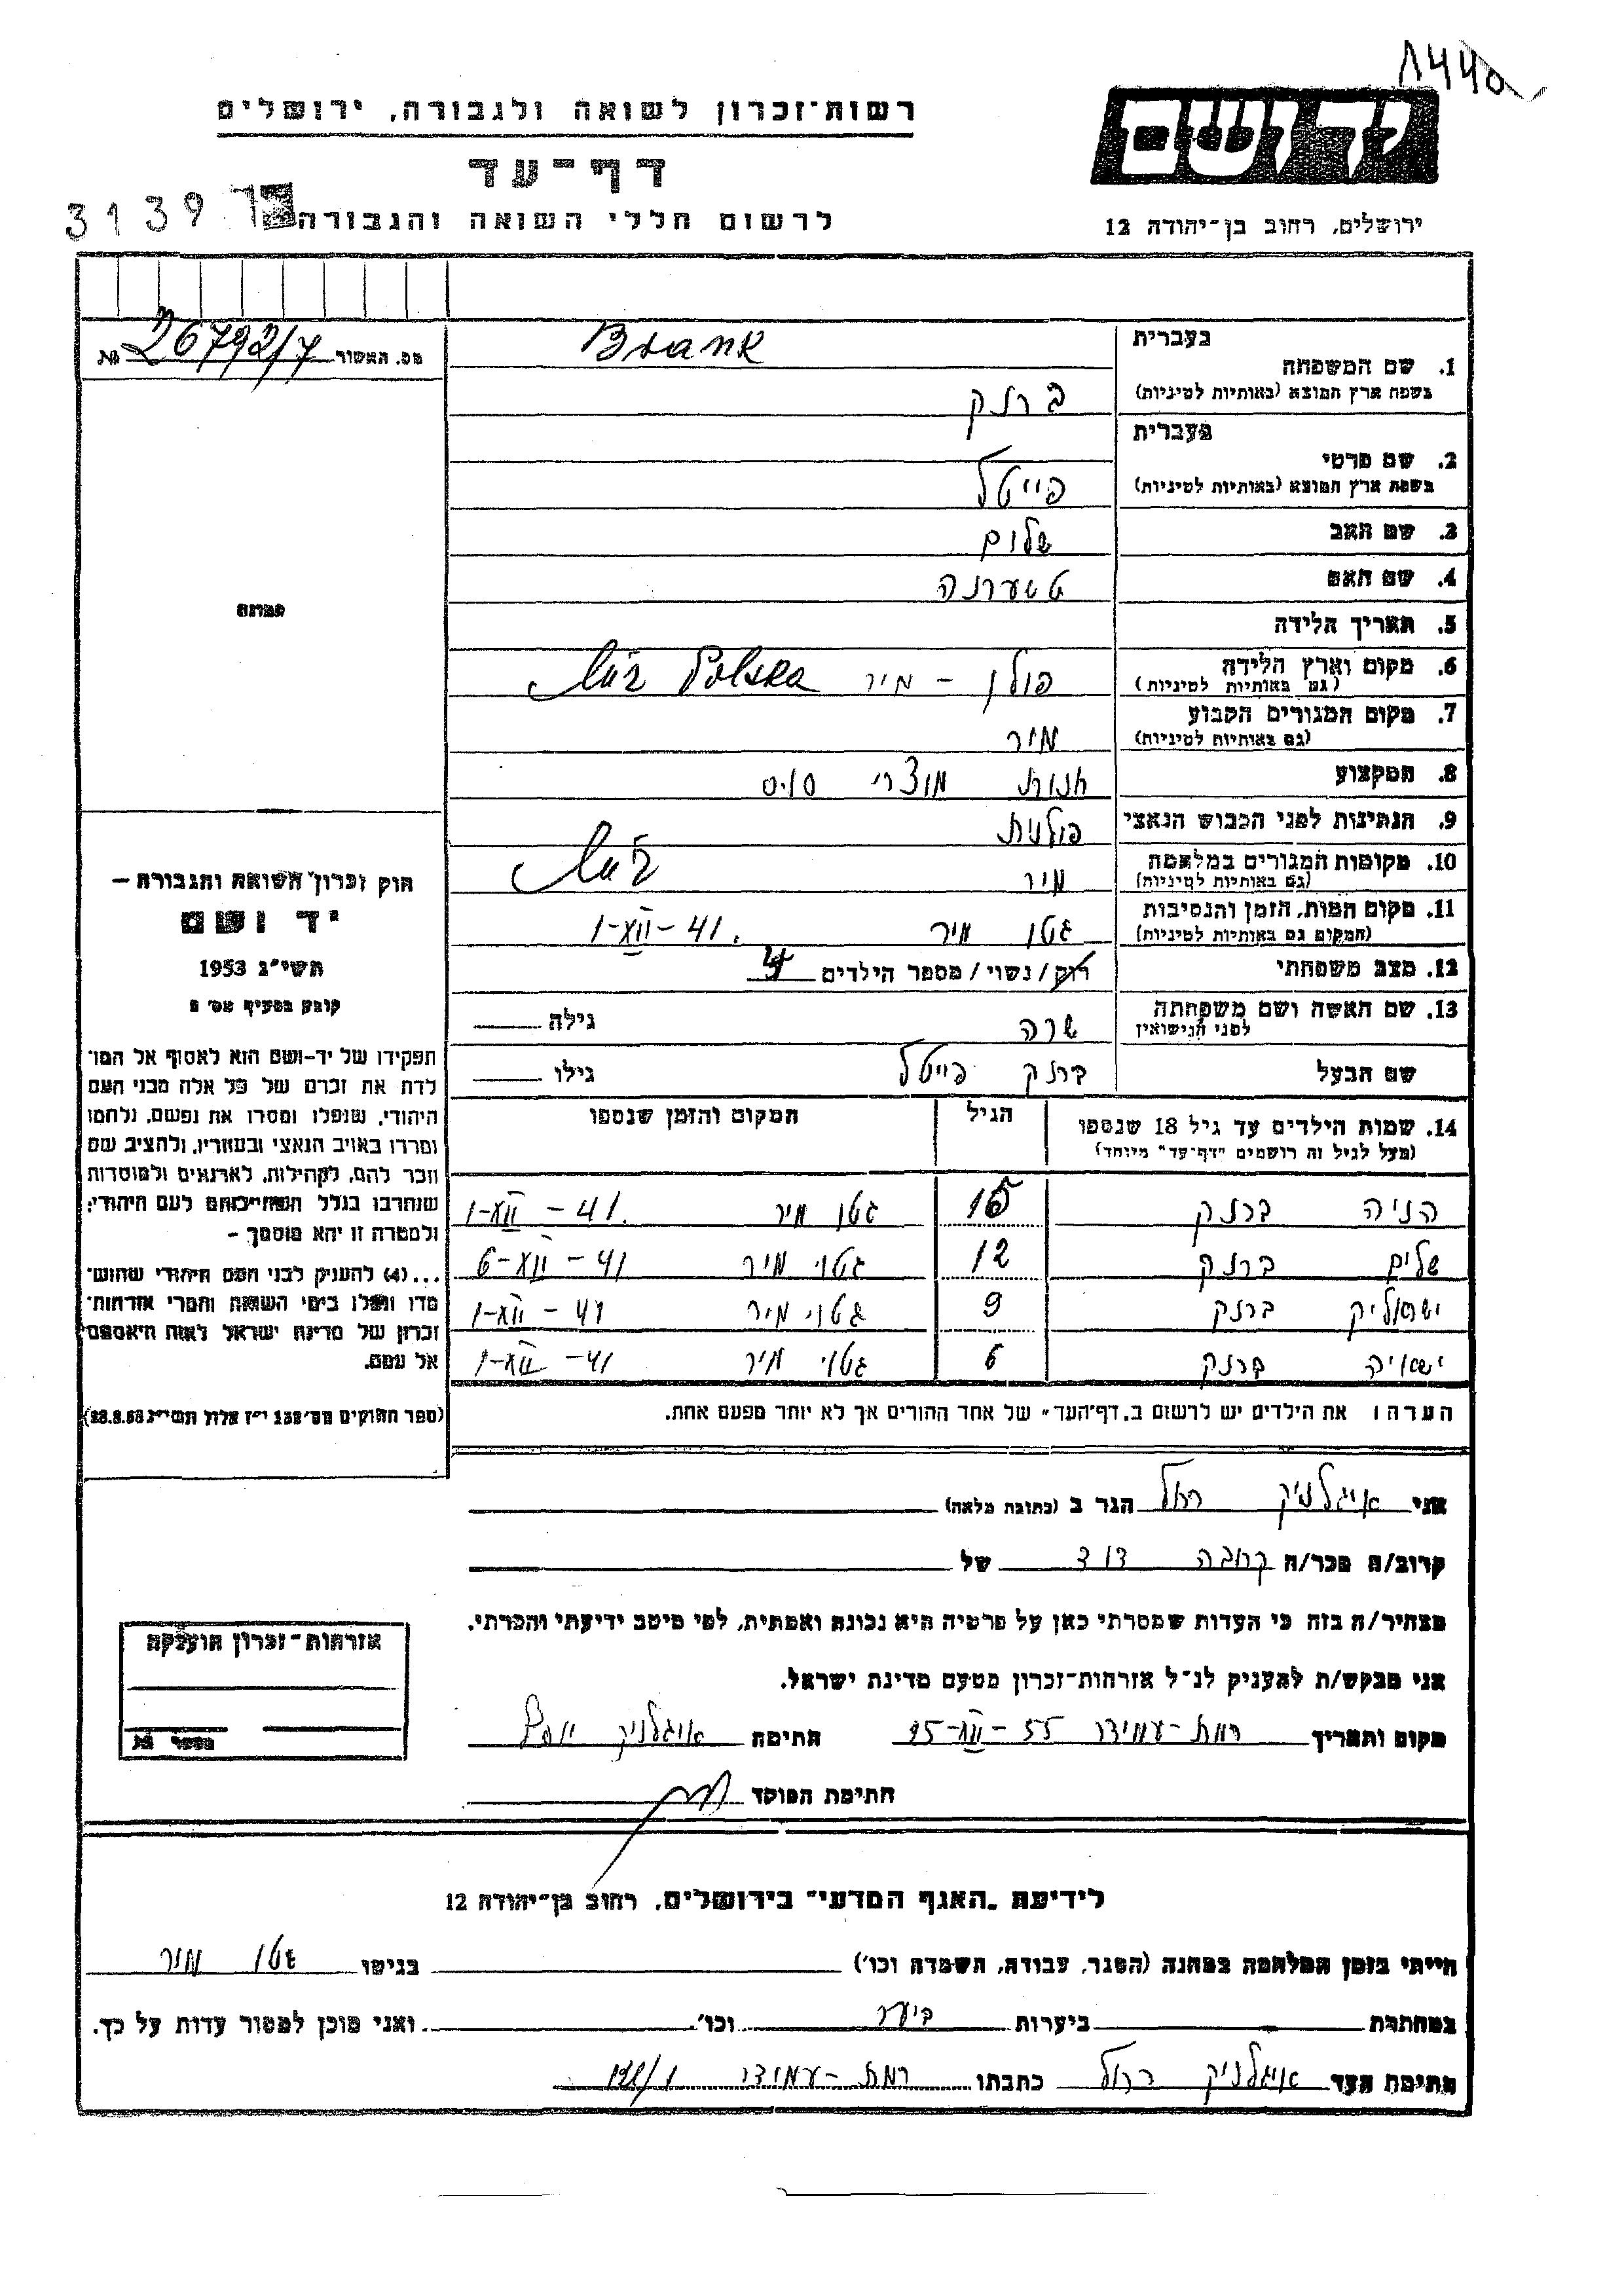 רשות־זכרון לשואה ולגבורה, ירושלים
דף־עד
לרשום חללי השואה והגבורה
יד ושם
ירושלים, רחוב בן־יהודה 12
3139
26792/7
מס. האשור
1. שם המשפחה
בעברית
Brank
בשפת ארץ המוצא (באותיות לטיניות)
ברנק
2. שם פרטי
בעברית
בשפת ארץ המוצא (באותיות לטיניות)
פייטל
3. שם האב שלום
4. שם האם טשערנה
5. תאריך הלידה
6. מקום וארץ הלידה פולן - מיר Polska Mir
(גם באותיות לטיניות)
7. מקום המגורים הקבוע מיר
(גם באותיות לטיניות)
8. המקצוע חנות מוצרי
9. הנתינות לפני הכבוש הנאצי פולנית
10. מקומות המגורים במלחמה מיר Mir
(גם באותיות לטיניות)
11. מקום המות, הזמן והנסיבות גטו מיר 1-XII-41.
(המקום גם באותיות לטיניות)
12. מצב משפחתי רוק/נשוי/מספר הילדים 4
13. שם האשה ושם משפחתה שרה גילה
לפני הנישואין
שם הבעל ברנק פייטל גילו
14. שמות הילדים עד גיל 18 שנספו הגיל המקום והזמן שנספו
(מעל לגיל זה רושמים "דף־עד" מיוחד)
הניה ברנק גטו מיר 1-XII-41.
שלום ברנק 12 גטו מיר 6-XII-41
ישראליק ברנק 9 גטו מיר 1-XII-41
ישעיה ברנק 6 גטו מיר 1-XII-41
הערה: את הילדים יש לרשום ב"דף־העד" של אחד ההורים אך לא יותר מפעם אחת.
תמונה
חוק זכרון השואה והגבורה –
יד ושם
תשי"ג 1953
קובע בסעיף מס'
תפקידו של יד-ושם הוא לאסוף אל המו־
לדת את זכרם של כל אלה מבני העם
היהודי, שנפלו ומסרו את נפשם, נלחמו
ומרדו באויב הנאצי ובעוזריו, ולהציב שם
וזכר להם, לקהילות, לארגונים ולמוסדות
שנחרבו בגלל השתייכותם לעם היהודי;
ולמטרה זו יהא מוסמך –
...(4) להעניק לבני העם היהודי שהוש־
מדו ונפלו בימי השואה והמרי אזרחות־
זכרון של מדינת ישראל לאות היאספם
אל עמם.
(ספר החוקים מס' 132 י"ז אלול תשי"ג 28.8.53)
אני איגלניק רחל הגר ב (כתובת מלאה)
קרוב/ה מכר/ה קרובה דוד של
מצהיר/ה בזה כי העדות שמסרתי כאן על פרטיה היא נכונה ואמתית, לפי מיטב ידיעתי והכרתי.
אני מבקש/ת להעניק לנ"ל אזרחות־זכרון מטעם מדינת ישראל.
מקום ותאריך רמת-עמידר 25-XII-55 חתימה איגלניק
חתימת המוסד
אזרחות־זכרון הוענקה
מספר
לידיעת "האגף המדעי" בירושלים, רחוב בן־יהודה 12
הייתי בזמן המלחמה במחנה (הסגר, עבודה, השמדה וכו') בגיטו גטו מיר
במחתרת ביערות ביער וכו' ואני מוכן למסור עדות על כך.
חתימת העד איגלניק רחל כתבתו רמת-עמידר